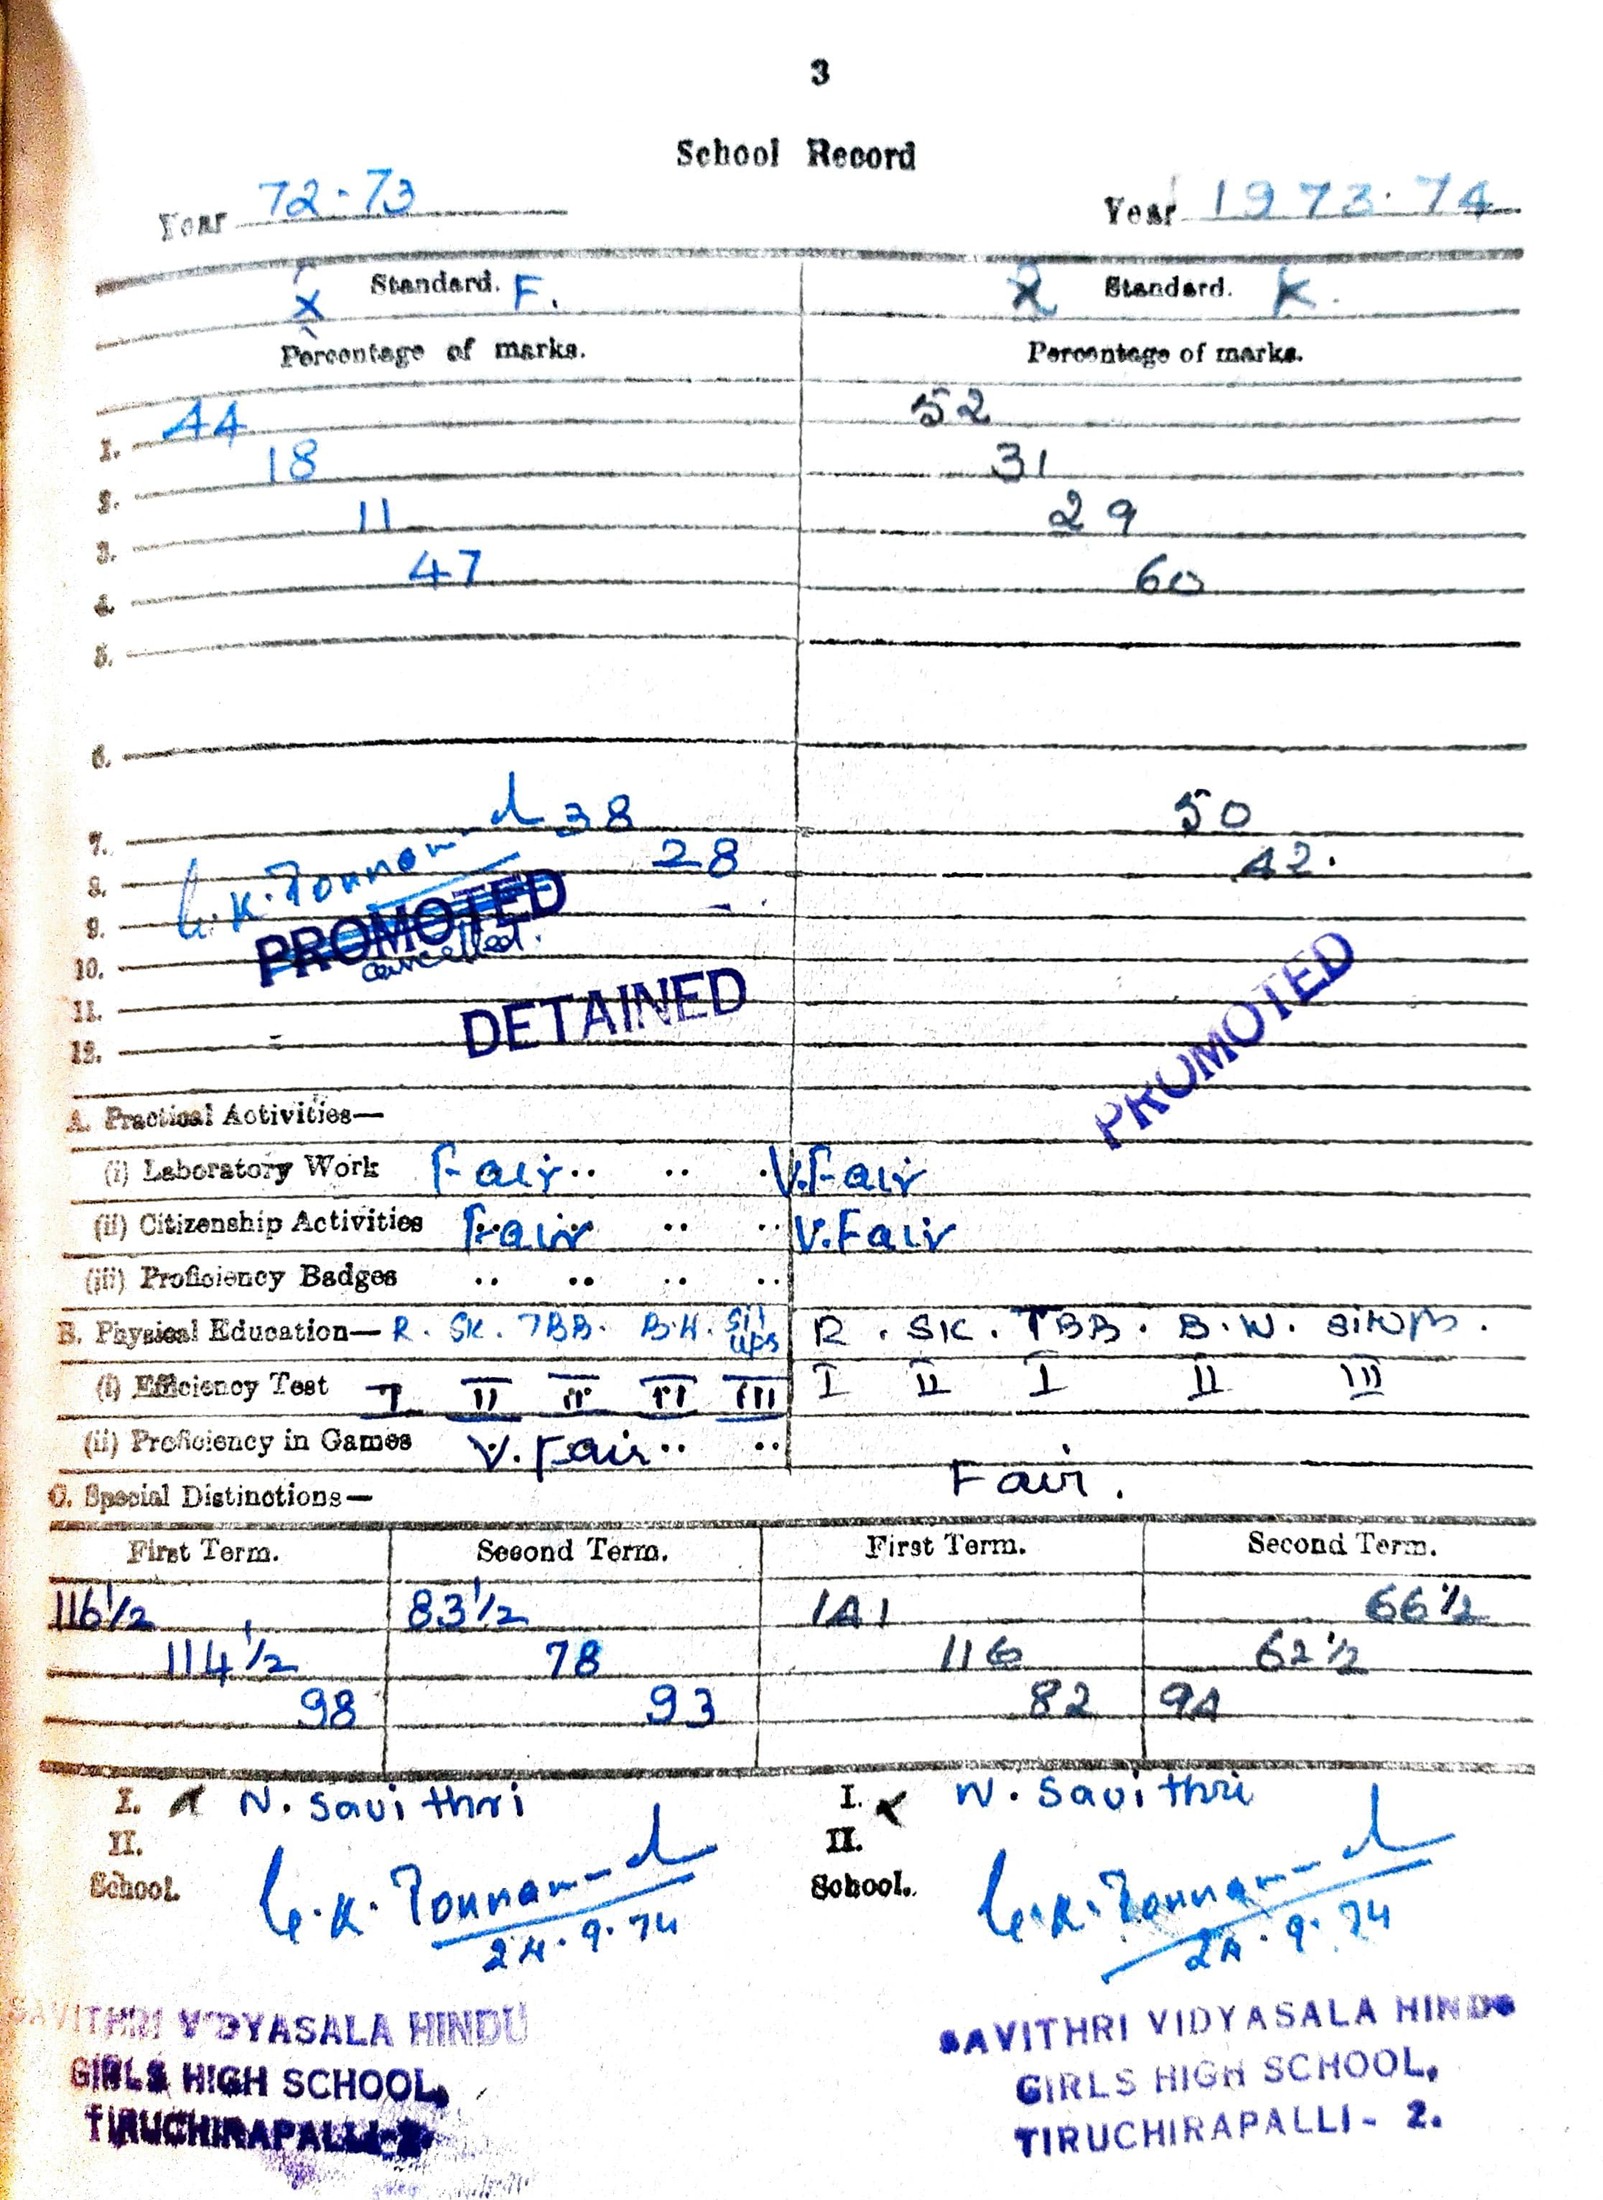 3
School Record
Year 72-73 Year 1973-74
X Standard. F. X Standard. K.
Percentage of marks. Percentage of marks.
1. 44 52
2. 18 31
3. 11 29
4. 47 60
5.
6.
7. 38 50
8. 28 42.
9.
PROMOTED
10. cancelled.
11. DETAINED PROMOTED
12.
A. Practical Activities—
(i) Laboratory Work Fair .. .. .. V.Fair
(ii) Citizenship Activities Fair .. .. V.Fair
(iii) Proficiency Badges .. .. .. ..
B. Physical Education— R. SK. TBB. B.H. Sit ups R. SK. TBB. B.W. situps.
(i) Efficiency Test I II II II III I II I II III
(ii) Proficiency in Games V. Fair .. .. Fair.
C. Special Distinctions—
First Term. Second Term. First Term. Second Term.
116½ 83½ 141 66½
114½ 78 116 62½
98 93 82 94
I. N. Savithri I. N. Savithri
II. II.
School. School.
24.9.74 24.9.74
SAVITHRI VIDYASALA HINDU SAVITHRI VIDYASALA HINDU
GIRLS HIGH SCHOOL, GIRLS HIGH SCHOOL,
TIRUCHIRAPALLI-2. TIRUCHIRAPALLI-2.